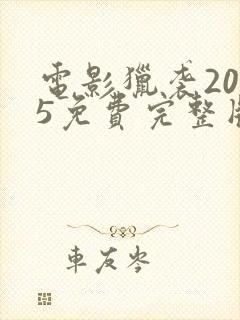 電影獵袭20
5免費完整版
車友岑